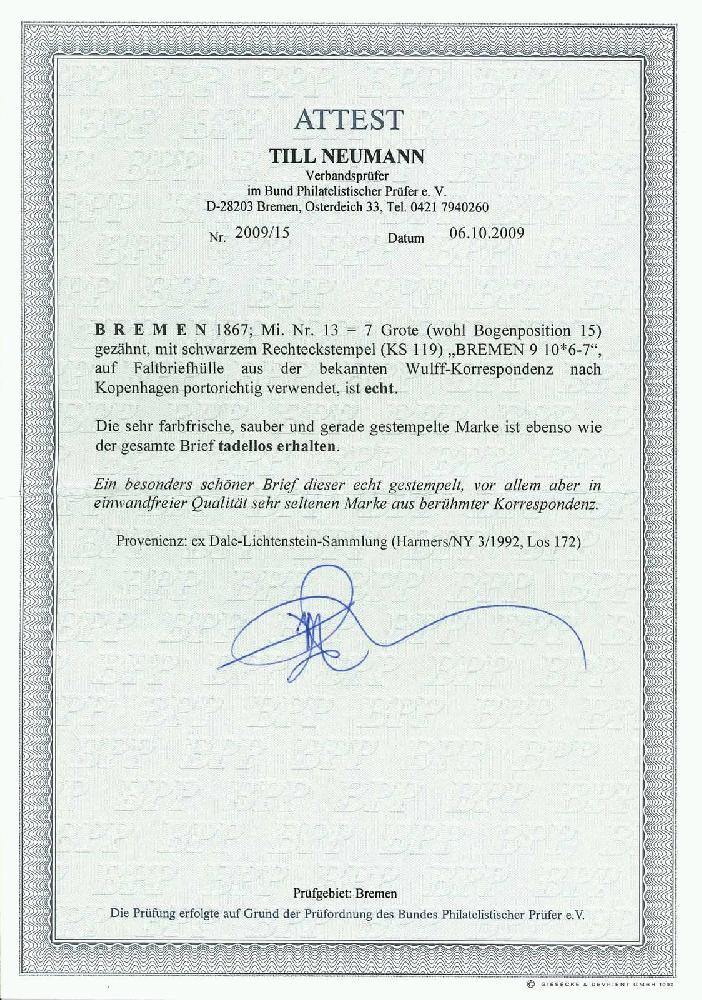 ATTEST
TILL NEUMANN
Verbandsprüfer
im Bund Philatelistischer Prüfer e. V.
D-28203 Bremen, Osterdeich 33, Tel. 0421 7940260
Nr. 2009/15 Datum 06.10.2009
B R E M E N 1867; Mi. Nr. 13 = 7 Grote (wohl Bogenposition 15)
gezähnt, mit schwarzem Rechteckstempel (KS 119) „BREMEN 9 10*6-7“,
auf Faltbriefhülle aus der bekannten Wulff-Korrespondenz nach
Kopenhagen portorichtig verwendet, ist echt.
Die sehr farbfrische, sauber und gerade gestempelte Marke ist ebenso wie
der gesamte Brief tadellos erhalten.
Ein besonders schöner Brief dieser echt gestempelt, vor allem aber in
einwandfreier Qualität sehr seltenen Marke aus berühmter Korrespondenz.
Provenienz: ex Dale-Lichtenstein-Sammlung (Harmers/NY 3/1992, Los 172)
Prüfgebiet: Bremen
Die Prüfung erfolgte auf Grund der Prüfordnung des Bundes Philatelistischer Prüfer e.V.
© GIESECKE & DEVRIENT GMBH